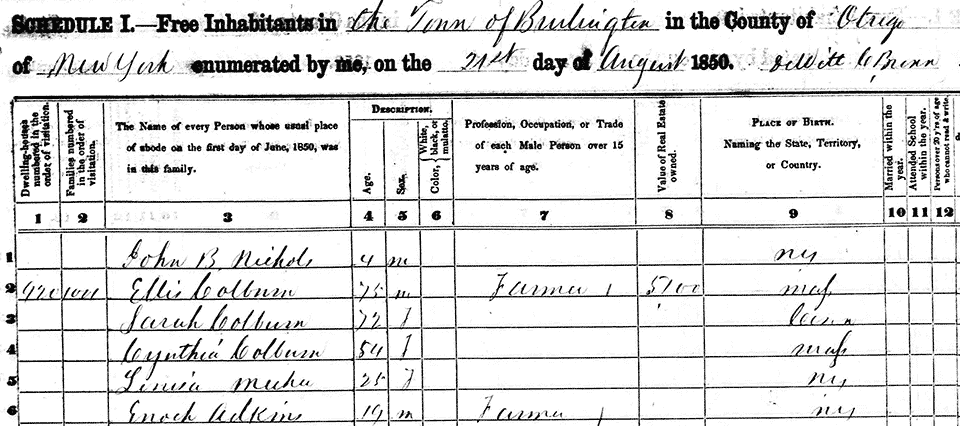 SCHEDULE I.—Free Inhabitants in the Town of Burlington in the County of Otsego
of New York enumerated by me, on the 21st day of August 1850. DeWitt C Brown
Dwelling-houses numbered in the order of visitation.
Families numbered in the order of visitation.
The Name of every Person whose usual place of abode on the first day of June, 1850, was in this family.
DESCRIPTION.
Age.
Sex.
Color, White, black, or mulatto.
Profession, Occupation, or Trade of each Male Person over 15 years of age.
Value of Real Estate owned.
PLACE OF BIRTH. Naming the State, Territory, or Country.
Married within the year.
Attended School within the year.
Persons over 20 y'rs of age who cannot read & write.
1 2 3 4 5 6 7 8 9 10 11 12
1 John B Nichols 4 m ny
2 Ellis Colburn 75 m Farmer 5100 mass
3 Sarah Colburn 72 f Conn
4 Cynthia Colburn 54 f mass
5 25 f ny
6 Enoch Adkins 19 m Farmer ny